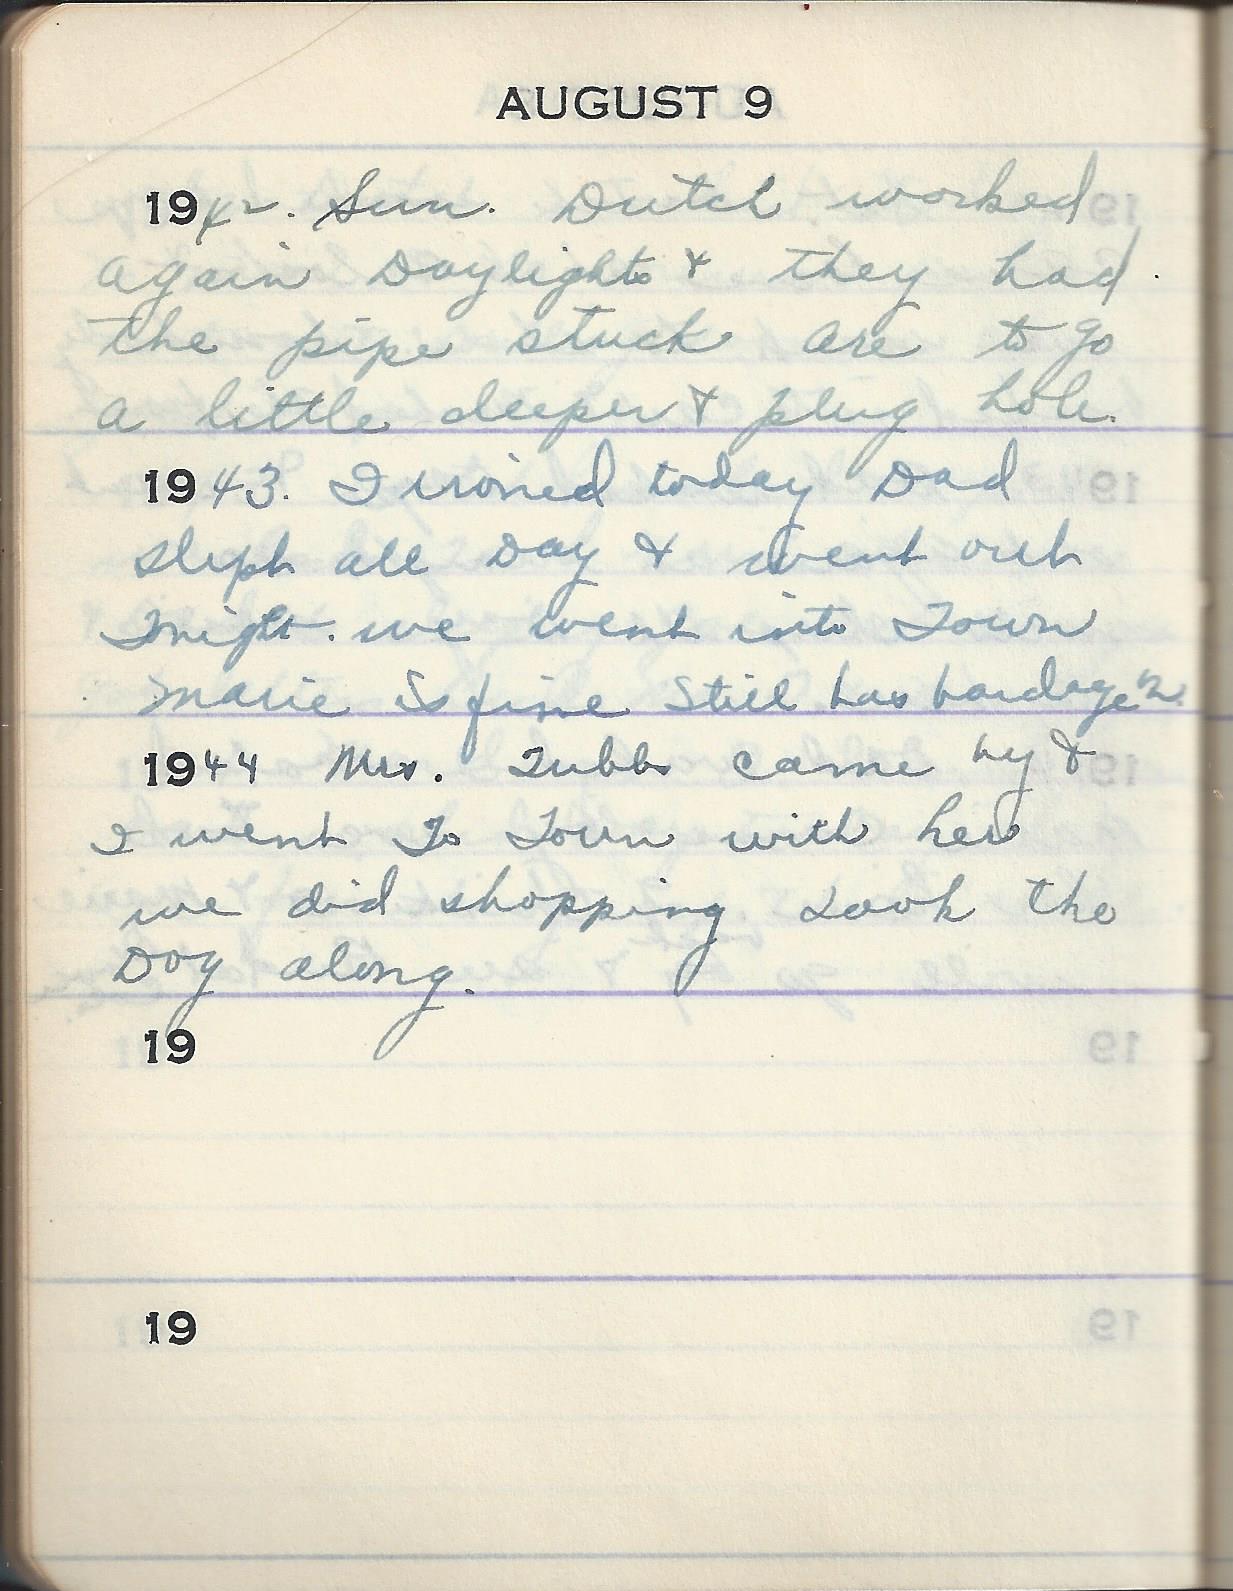 AUGUST 9
1942. Sun. Dutch worked
again Daylights & they had
the pipe stuck are to go
a little deeper & plug hole.
1943. I ironed today Dad
slept all Day & went out
Tonight. we went into Town
Marie is fine still has bandage on
1944 Mrs. Tubbs came by &
I went To Town with her
we did shopping Took the
Dog along.
19
19